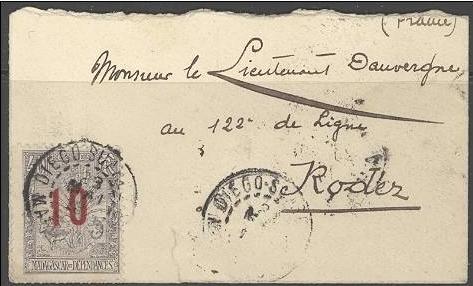 (France)
Monsieur le Lieutenant Dauvergne
au 122e de Ligne
Rodez
DIEGO-SUAREZ
10
MADAGASCAR et DÉPENDANCES
DIEGO-S